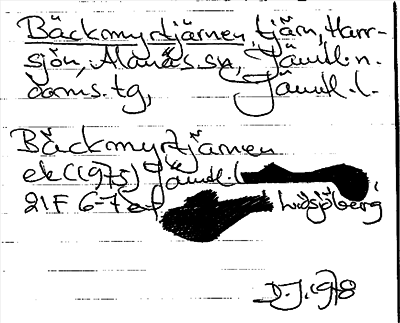 Bäckmyrtjärnen, tjärn, Harr-
sjön, Alanäs sn, Jämtl. n.
doms. tg, Jämtl. l.
Bäckmyrtjärnen
ek (1975) Jämtl. l
21F 6-7 ef
D.J. 1978